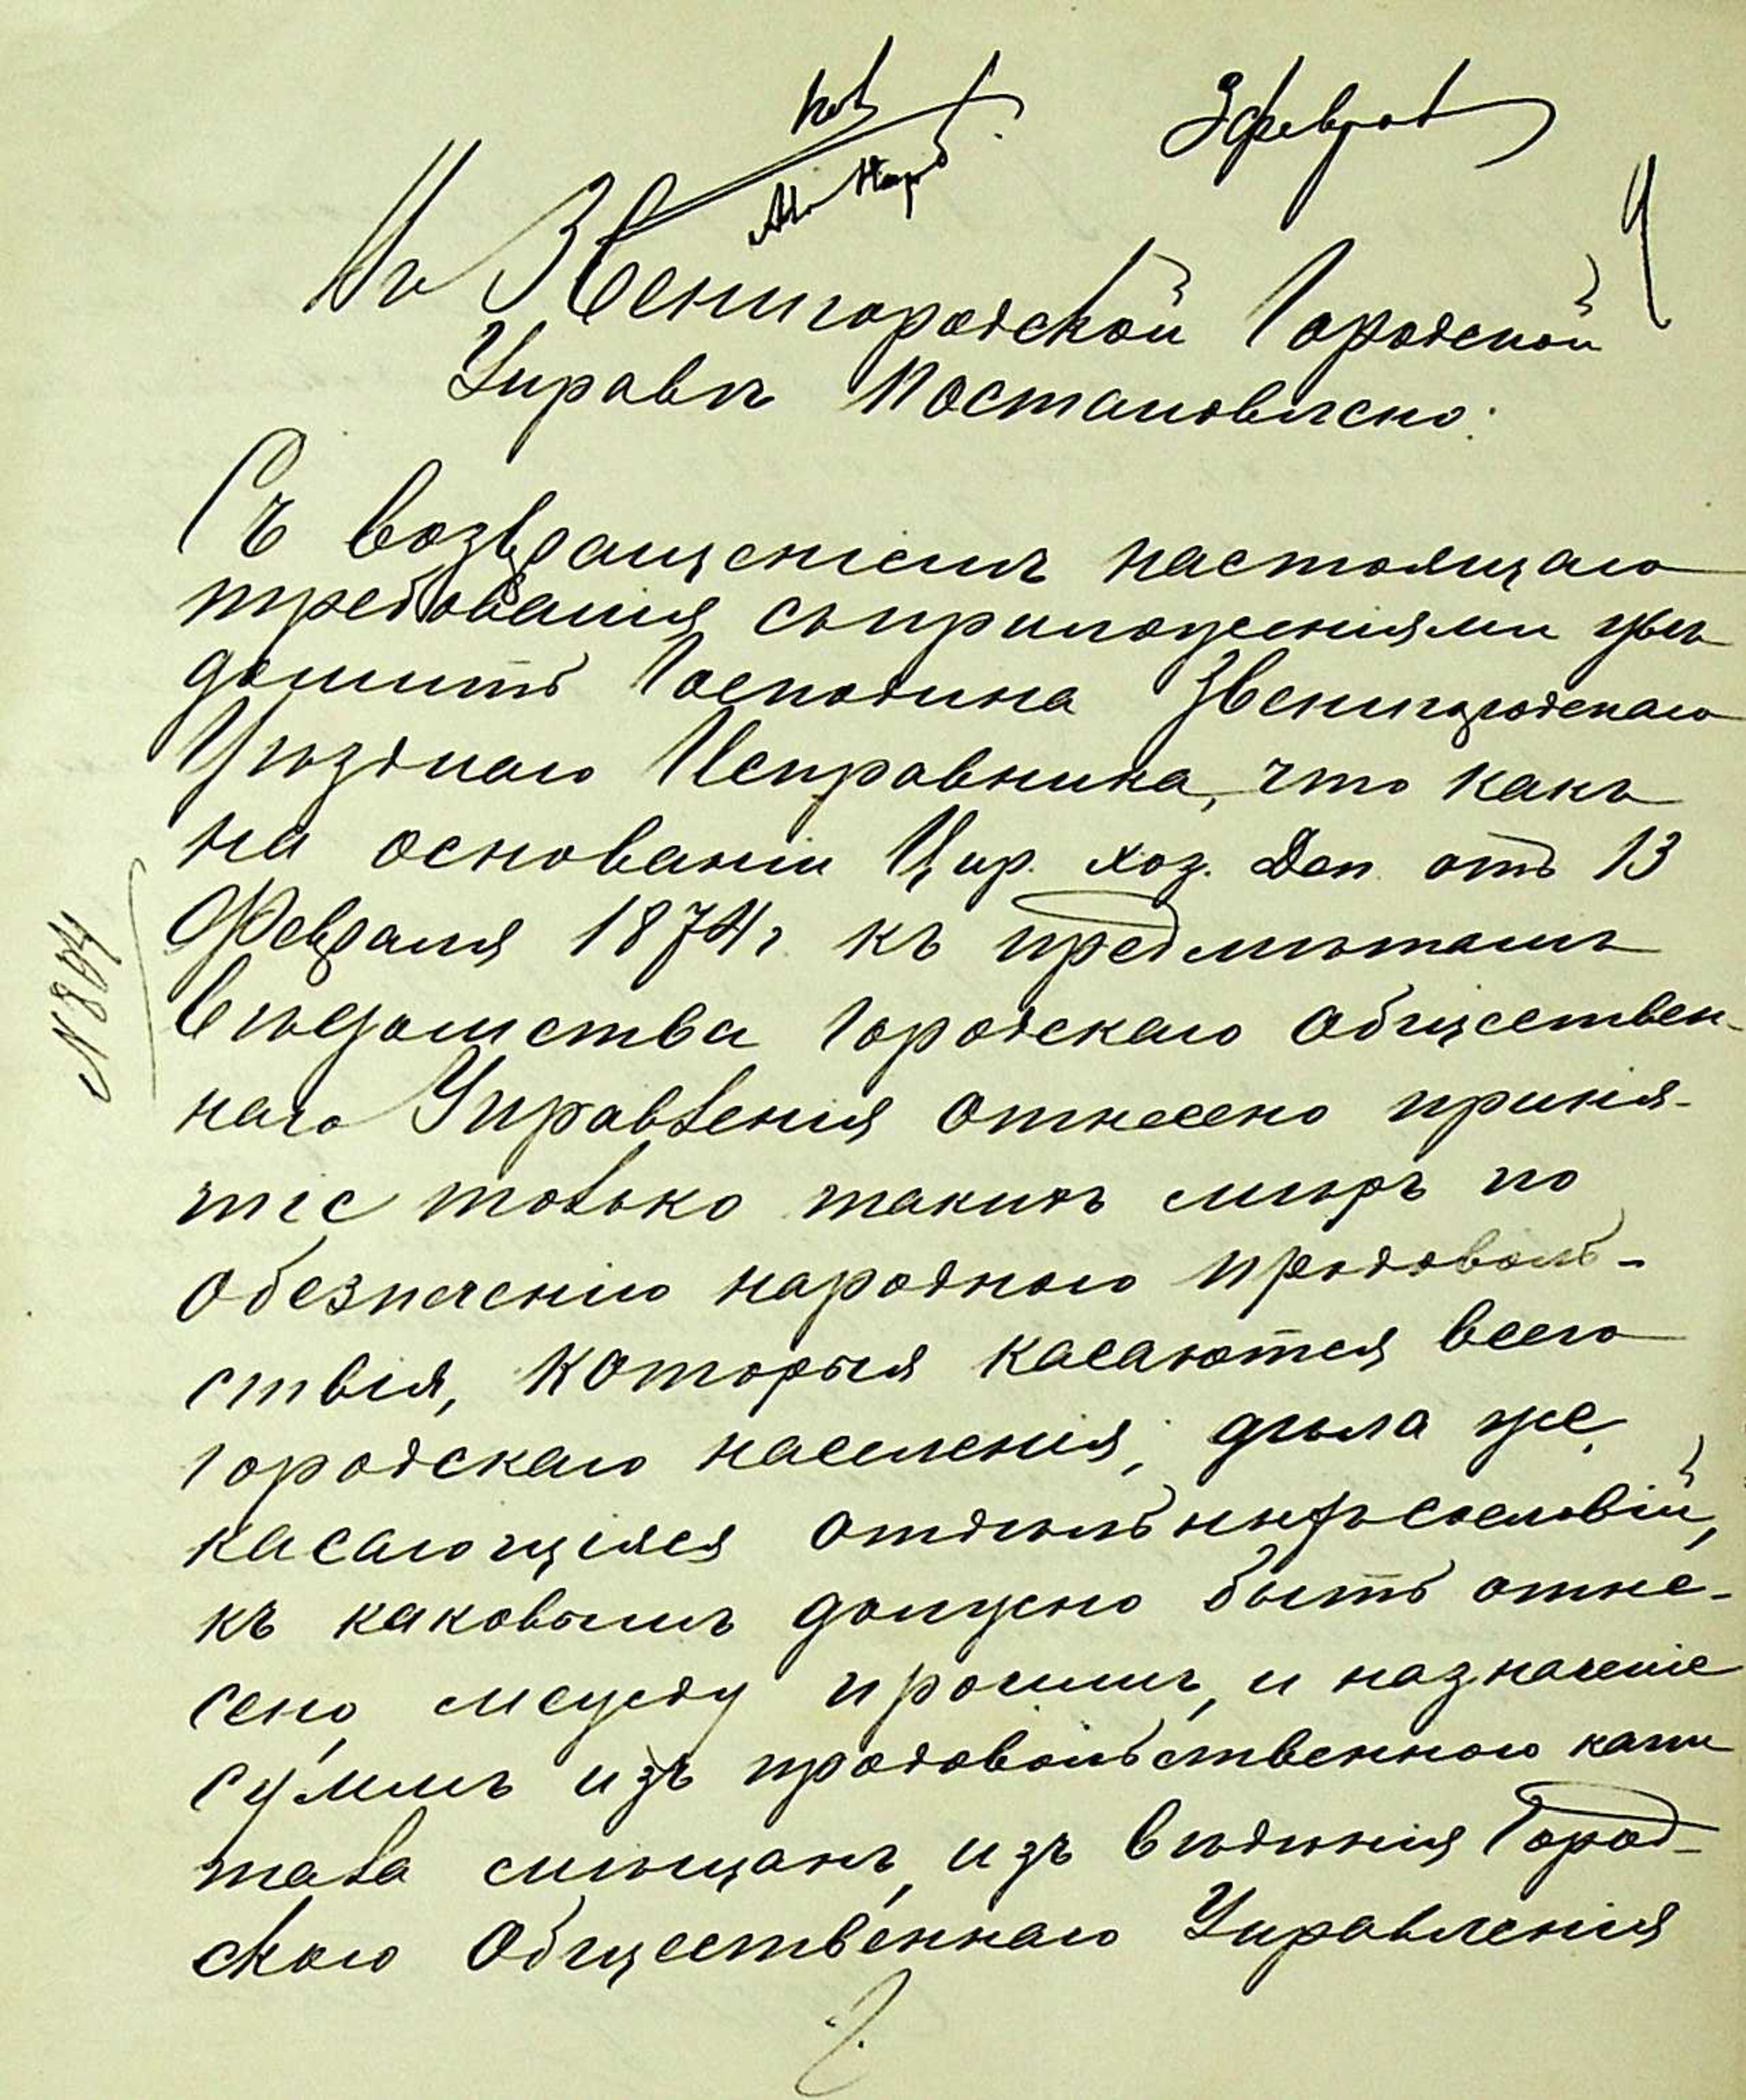 3 Феврал
4
Въ Звенигородской Городской
Управѣ Постановлено:
Съ возвращеніемъ настоящаго
требованія съ приложеніями увѣ
домить Господина Звенигородскаго
Уѣзднаго Исправника, что какъ
на основаніи Цир. хоз. Деп. отъ 13
Февраля 1874 г. къ предметамъ
вѣдомства Городскаго Обществен-
наго Управленія отнесено приня-
тіе только такихъ мѣръ по
обезпеченію народнаго продоволь-
ствія, которыя касаются всего
городскаго населенія, дѣла же,
касающіяся отдѣльныхъ сословій,
къ каковымъ должно быть отне-
сено, между прочимъ, и назначеніе
суммъ изъ продовольственнаго капи
тала мѣщанъ, изъ вѣдѣнія Город-
скаго Общественнаго Управленія
№ 804